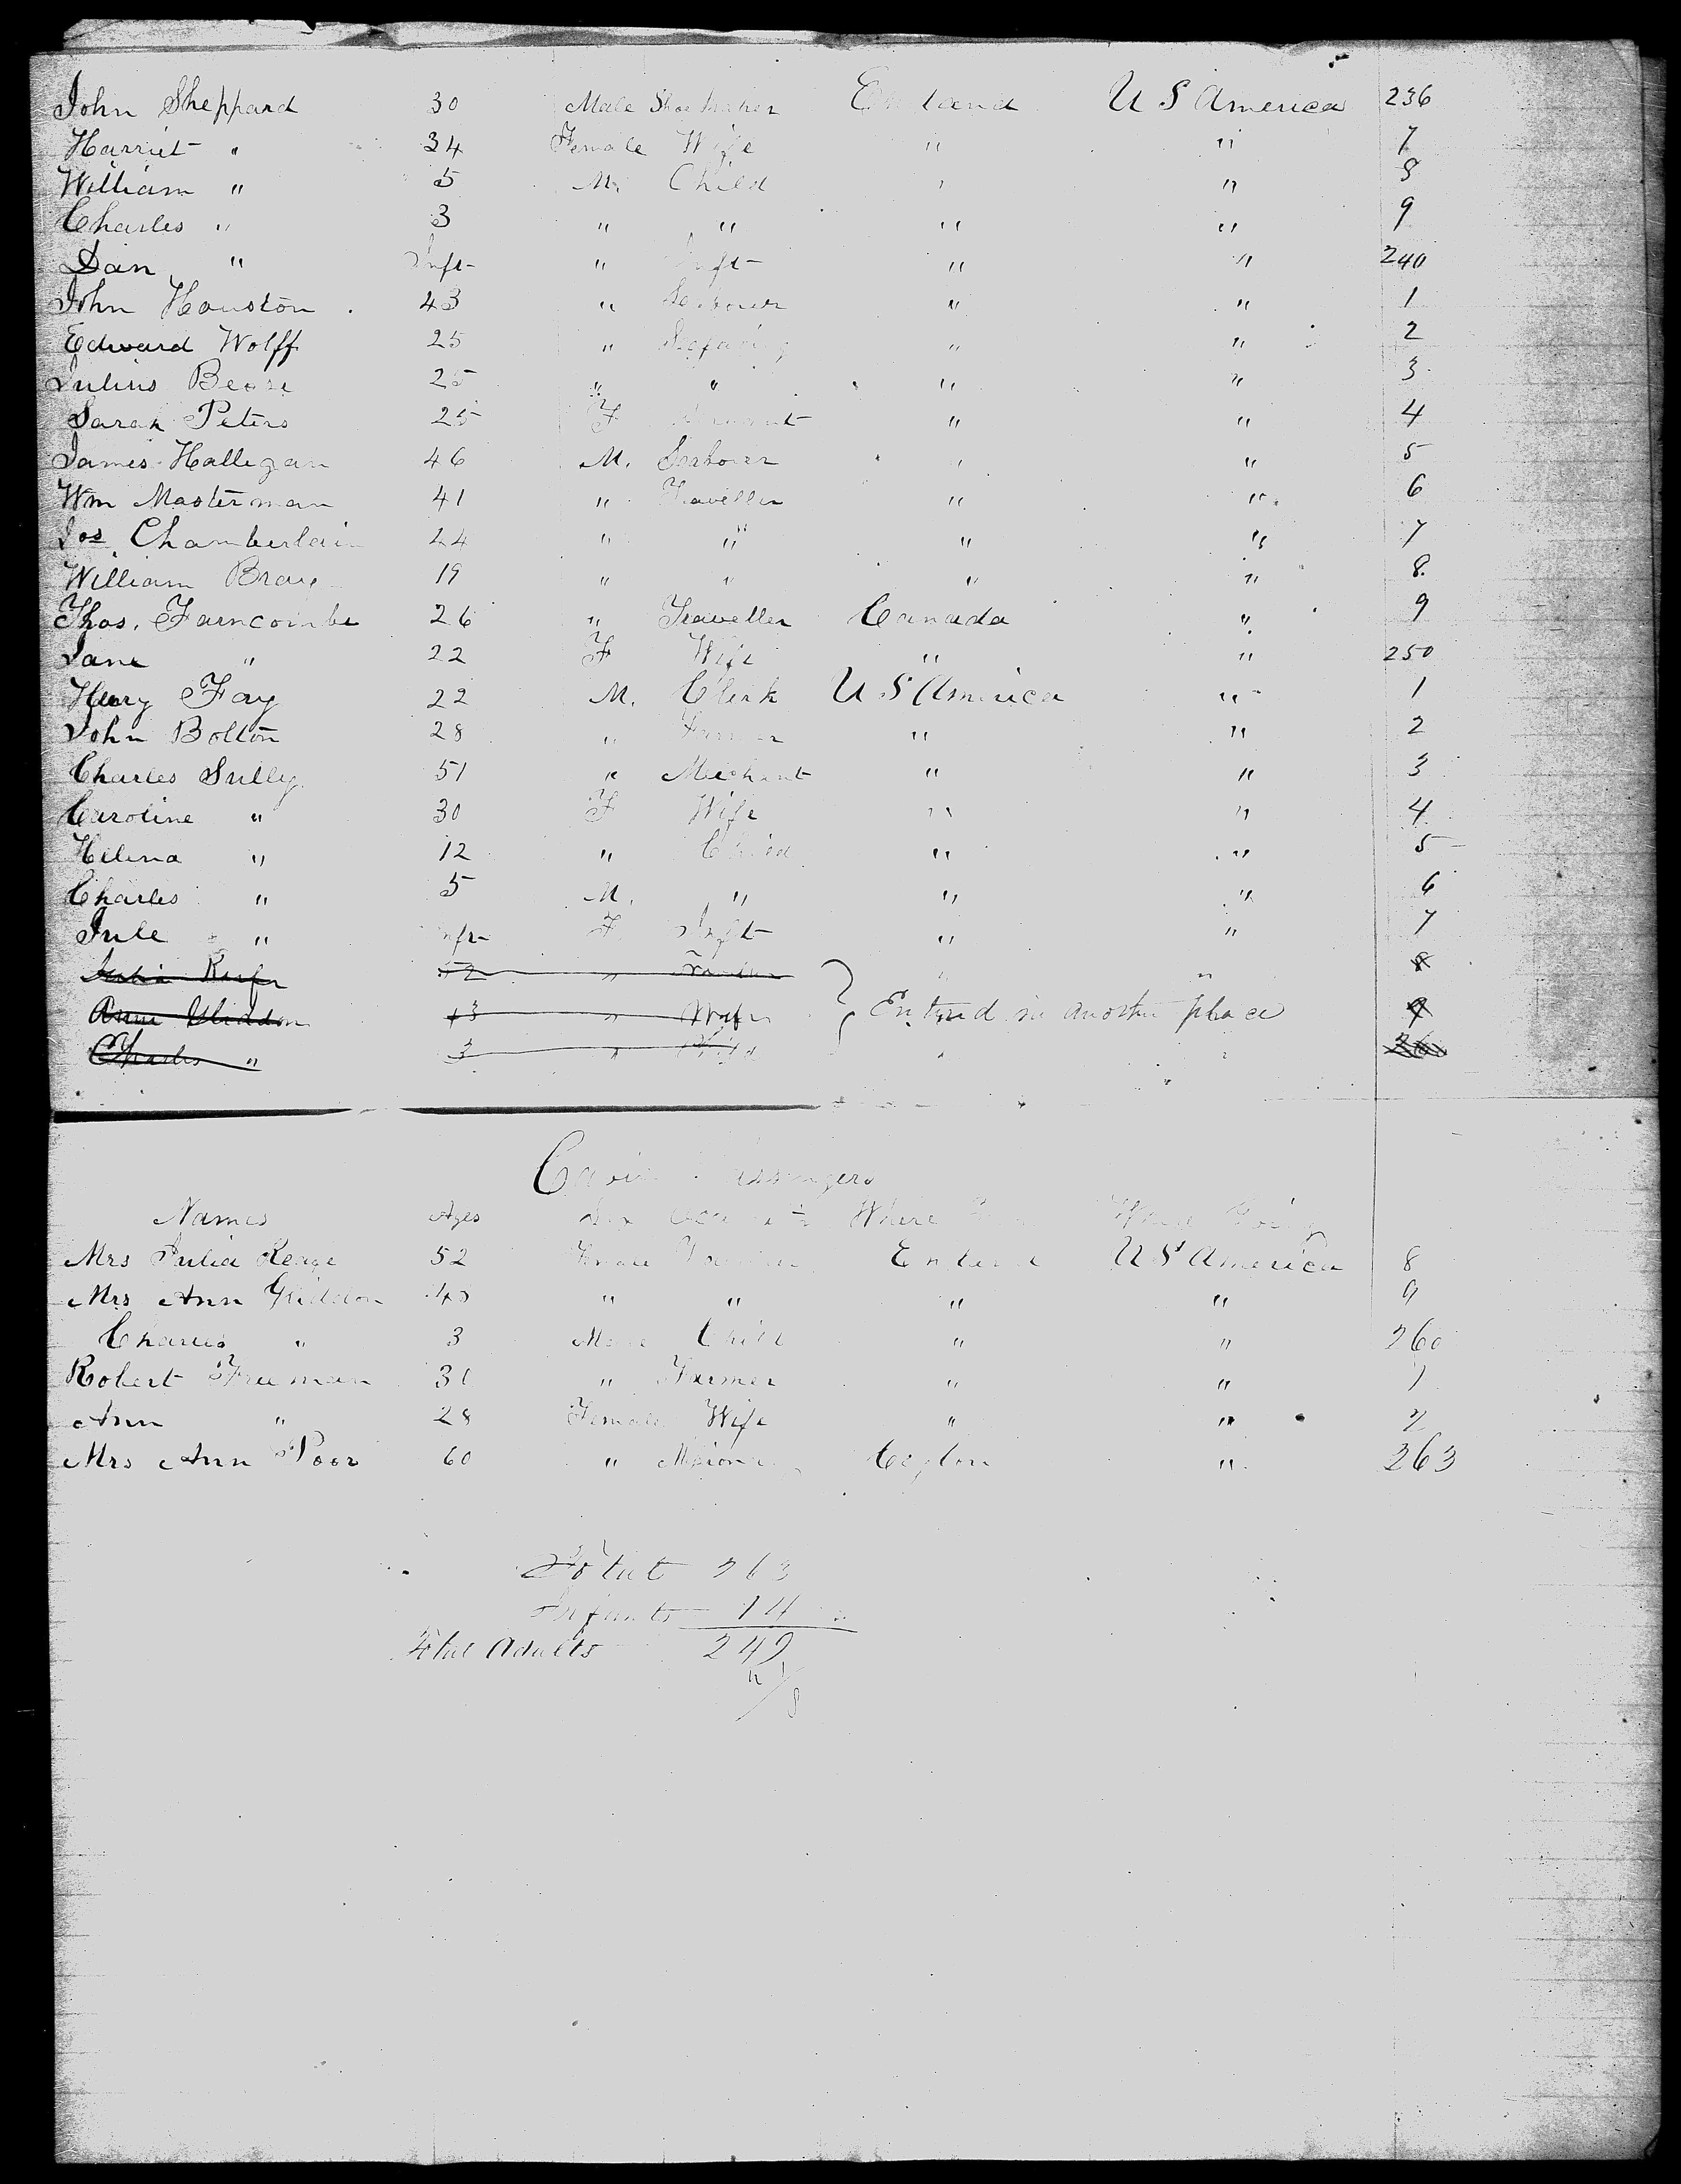 John Sheppard 30 Male Shoe Maker England U S America 236
Harriet " 34 Female Wife " " 7
William " 5 M. Child " " 8
Charles " 3 " " " " 9
Dan " Inft " Inft " " 240
John Houston 43 " " " 1
Edward Wolff 25 " Seafaring " " 2
Julius 25 " " " " 3
Sarah Peters 25 F Servant " " 4
James Hallegan 46 M. " " 5
Wm Masterman 41 " Traveller " " 6
Jos Chamberlain 24 " " " " 7
William Bray 19 " " " " 8
Thos. Farncombe 26 " Traveller Canada " 9
Jane " 22 F Wife " " 250
Henry Fay 22 M. Clerk U S America " 1
John Bolton 28 " Farmer " " 2
Charles Sully 51 " Merchant " " 3
Caroline " 30 F Wife " " 4
Helena " 12 " Child " " 5
Charles " 5 M. " " " 6
Jule " Inft F. Inft " " 7
Julia 52 " " " 8
Ann Gliddon 43 " Wife Entered in another place 9
Charles " 3 " Child " "
Cabin Passengers
Names Ages Sex Where Where Going
Mrs Julia 52 Female England U S America 8
Mrs Ann Gliddon 43 " " " " 9
Charles " 3 Male Child " " 260
Robert Freeman 31 " Farmer " " 1
Ann " 28 Female Wife " " 2
Mrs Ann Poor 60 " Ceylon " 263
Total 263
Infants 14
Total Adults 249